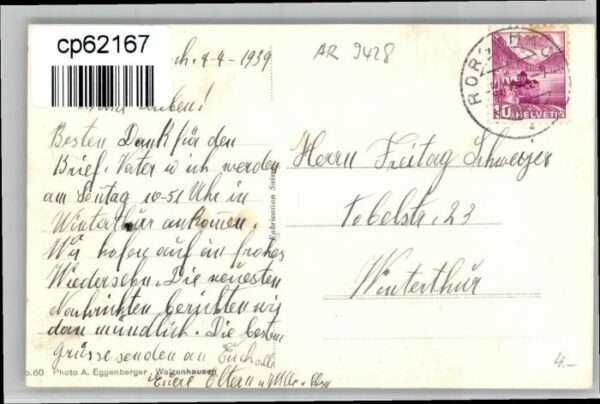 cp62167
ch. 4-4-1939
AR 9428
ROR
10 HELVETIA
Lieben!
Besten Dank für den
Brief. Vater u ich werden
am Sontag 10-51 Uhr in
Winterthur ankommen.
Wir hofen auf ein frohes
Wiedersehn. Die neuesten
Nachrichten berichten wir
dann mündlich. Die besten
Grüsse senden an Euch alle
Eure Eltern u
Fabrication Suisse
Herrn Freitag Schweizer
Tobelstr. 23
Winterthur
4.-
o.60 Photo A. Eggenberger, Walzenhausen